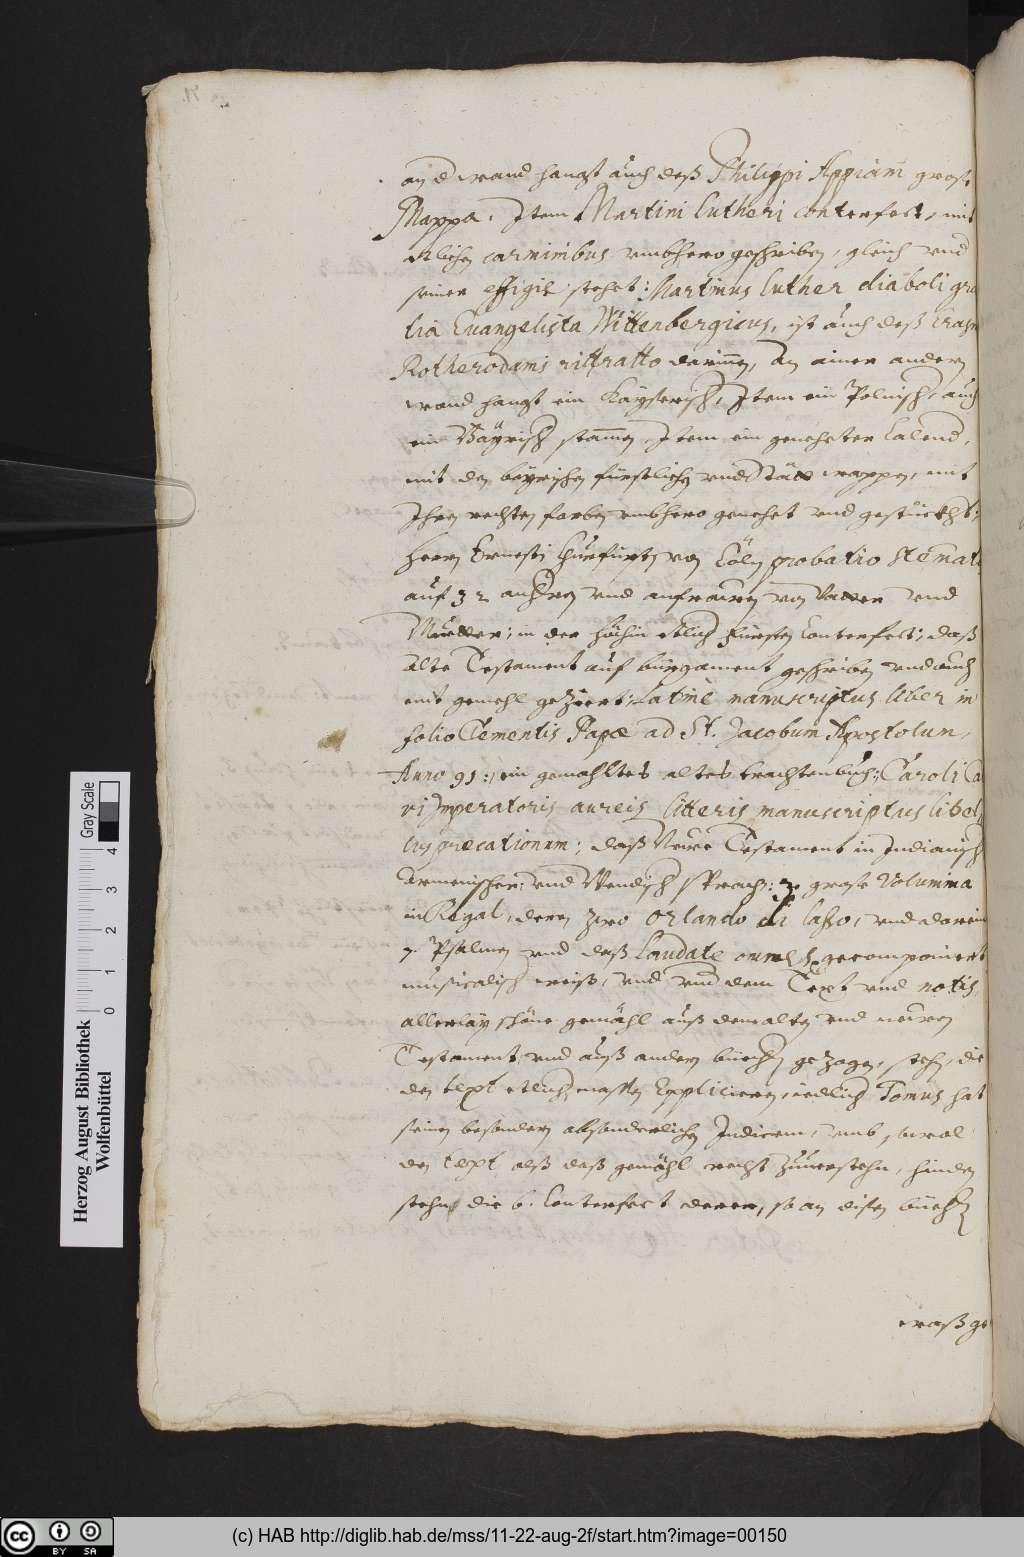 an d wand hangt auch deß Philippi Appiani große
Mappa. Item Martini Lutheri conterfect, mit
etlichen carminibus umbhero geschriben, gleich und
seiner effigie stehet: Martinus Luther diaboli gra
tia Evangelista Wittenbergicus, ist auch deß Erasm
Rotherodami rittratto darinen, An einer andern
wand hangt ein Kayserisch, Item ein Polnisch, auch
ein Bäyrisch stamen, Item ein geneheter Calend,
mit den bayrischen fürstlichen und Stätt wappen, mit
Ihren rechten farben umbhero genehet und gestückht;
Herrn Ernesti Churfürsten von Cöln probatio stemat
auf 32 anherren und anfrawen von Vatter und
Muetter; in der höhin etlich Fürsten Conterfect; daß
alte Testament auf bürgament geschriben und auch
mit gemehl geziert; Latine manuscriptus liber in
folio Clementis Papæ ad St. Jacobum Apostolum,
Anno 91:, ein gemahltes altes trachtenbuch; Caroli Ca
ri Imperatoris aureis litteris manuscriptus libel
lus precationum; daß Neue Testament in Indianisch
Armenischer, und Wendisch Sprach: 3 große Volumina
in Regal, deren zwo Orlando di Lasso, und darein
7. Psalmen und deß Laudate omnes gecomponiert
musicalisch weiß, und und dem Text und notis,
allerlay schöne gemähl auß dem alten und newen
Testament und auß andern büechern gezogen, stehn, die
den text etlicher massen Explicieren, iedlich Tomus hat
seinen besondern absonderlichen Indicem, umb sowol
den text alß daß gemähl recht zuuerstehn, hinden
stehn die 6. Conterfect deren, so an disen büech
waß ge
Herzog August Bibliothek
Wolfenbüttel
0 1 2 3 4
Gray Scale
cc BY SA
(c) HAB http://diglib.hab.de/mss/11-22-aug-2f/start.htm?image=00150